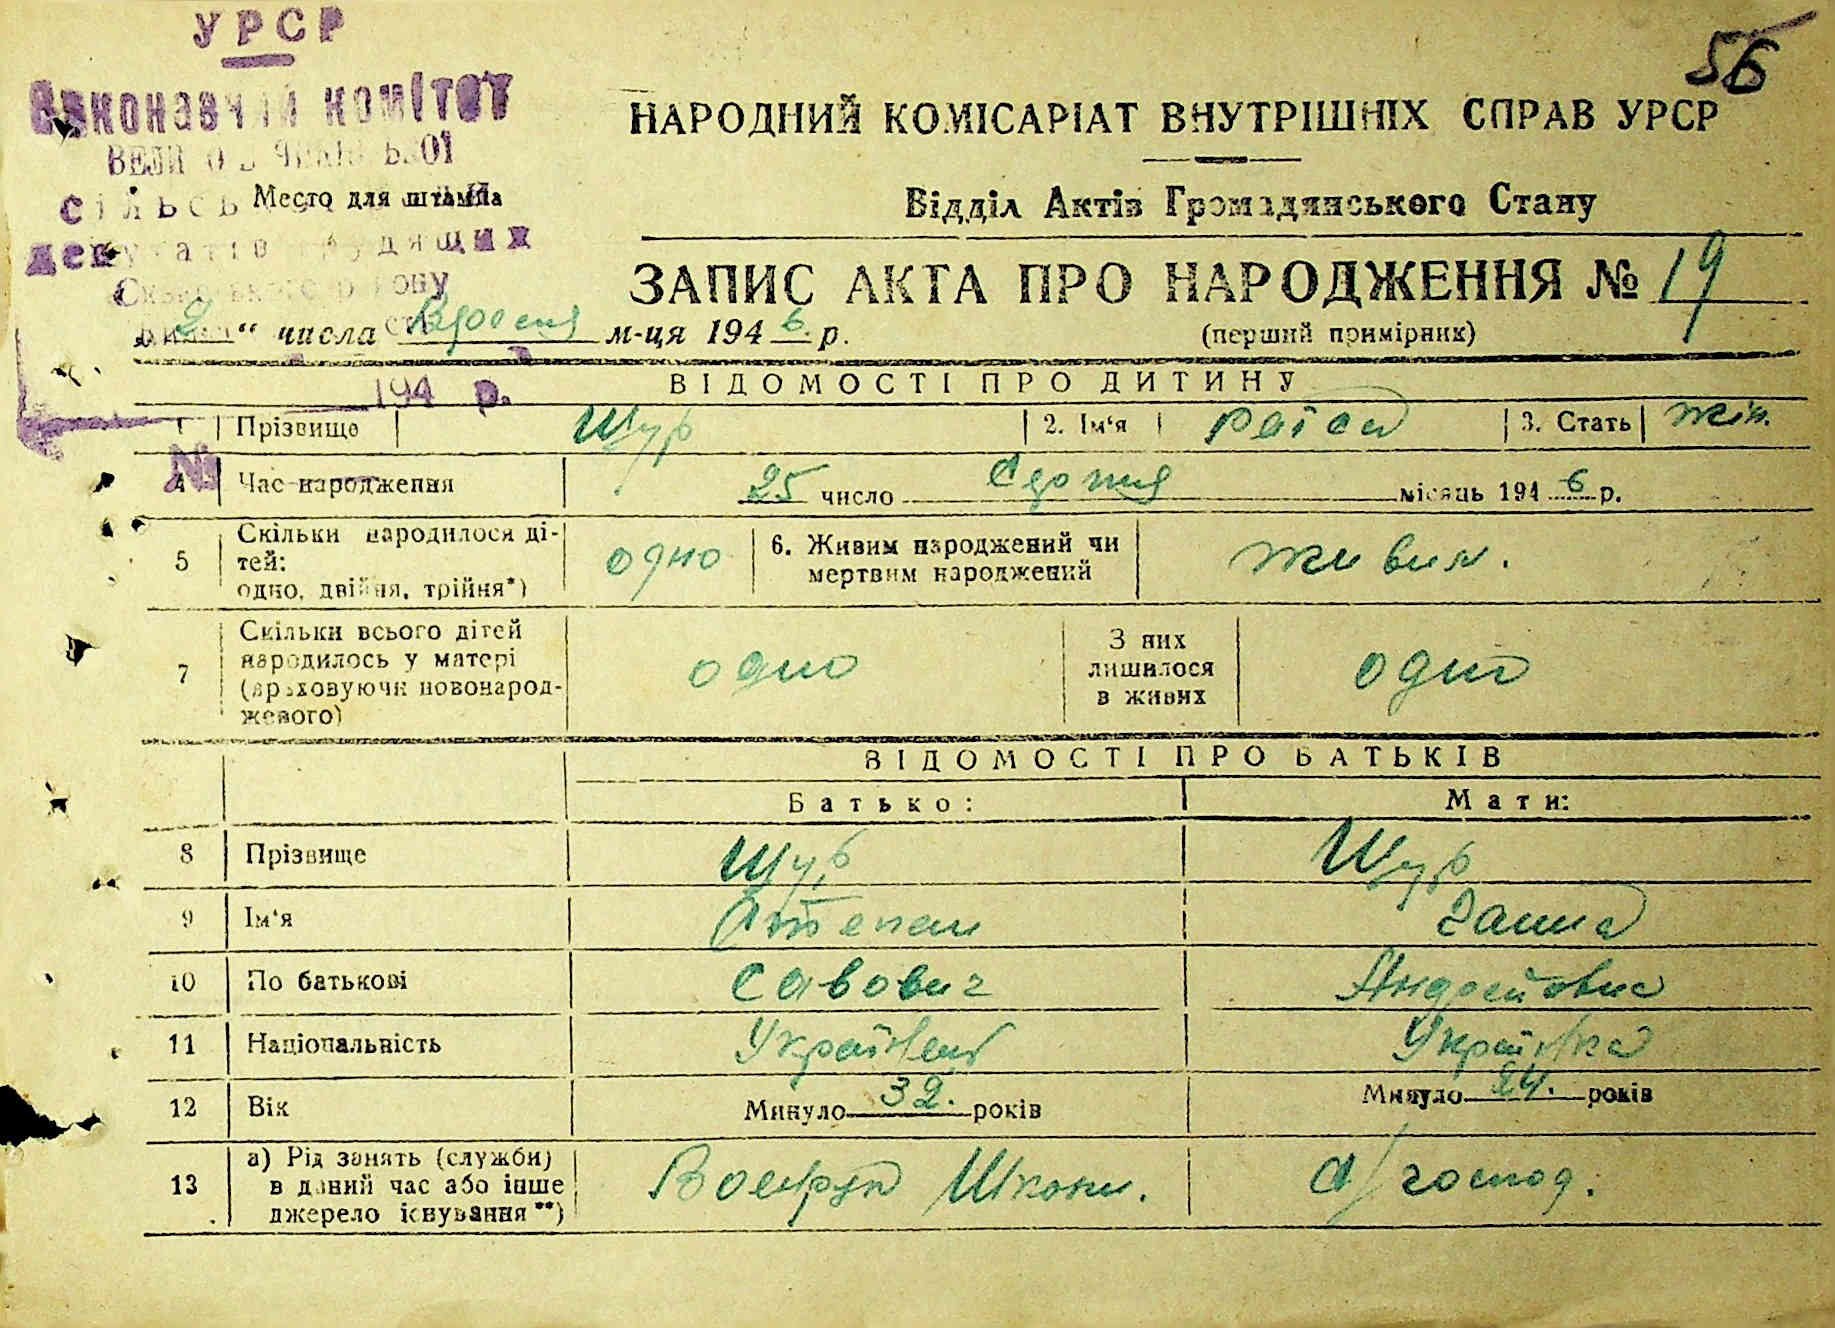 УРСР
56
Виконавчий комітет
НАРОДНИЙ КОМІСАРІАТ ВНУТРІШНІХ СПРАВ УРСР
Место для штампа
Відділ Актів Громадянського Стану
депутатів трудящих
ЗАПИС АКТА ПРО НАРОДЖЕННЯ № 19
(перший примірник)
„2“ числа Вересня м-ця 1946 р.
194 р.
№
ВІДОМОСТІ ПРО ДИТИНУ
1 Прізвище Щур 2. Ім‘я Раїса 3. Стать жін.
4 Час народження 25 число Серпня місяць 1946 р.
5 Скільки народилося ді-
тей:
одно, двійня, трійня*) одно 6. Живим народжений чи
мертвим народжений живим.
7 Скільки всього дітей
народилось у матері
(враховуючи новонарод-
жевого) одно З них
лишилося
в живих одно
ВІДОМОСТІ ПРО БАТЬКІВ
Батько: Мати:
8 Прізвище Щур Щур
9 Ім‘я Степан Ганна
10 По батькові Савович Андреївна
11 Національність Українец Українка
12 Вік Минуло 32. років Минуло 24. років
13 а) Рід занять (служби)
в даний час або інше
джерело існування**) Военрук Школи. д/господ.